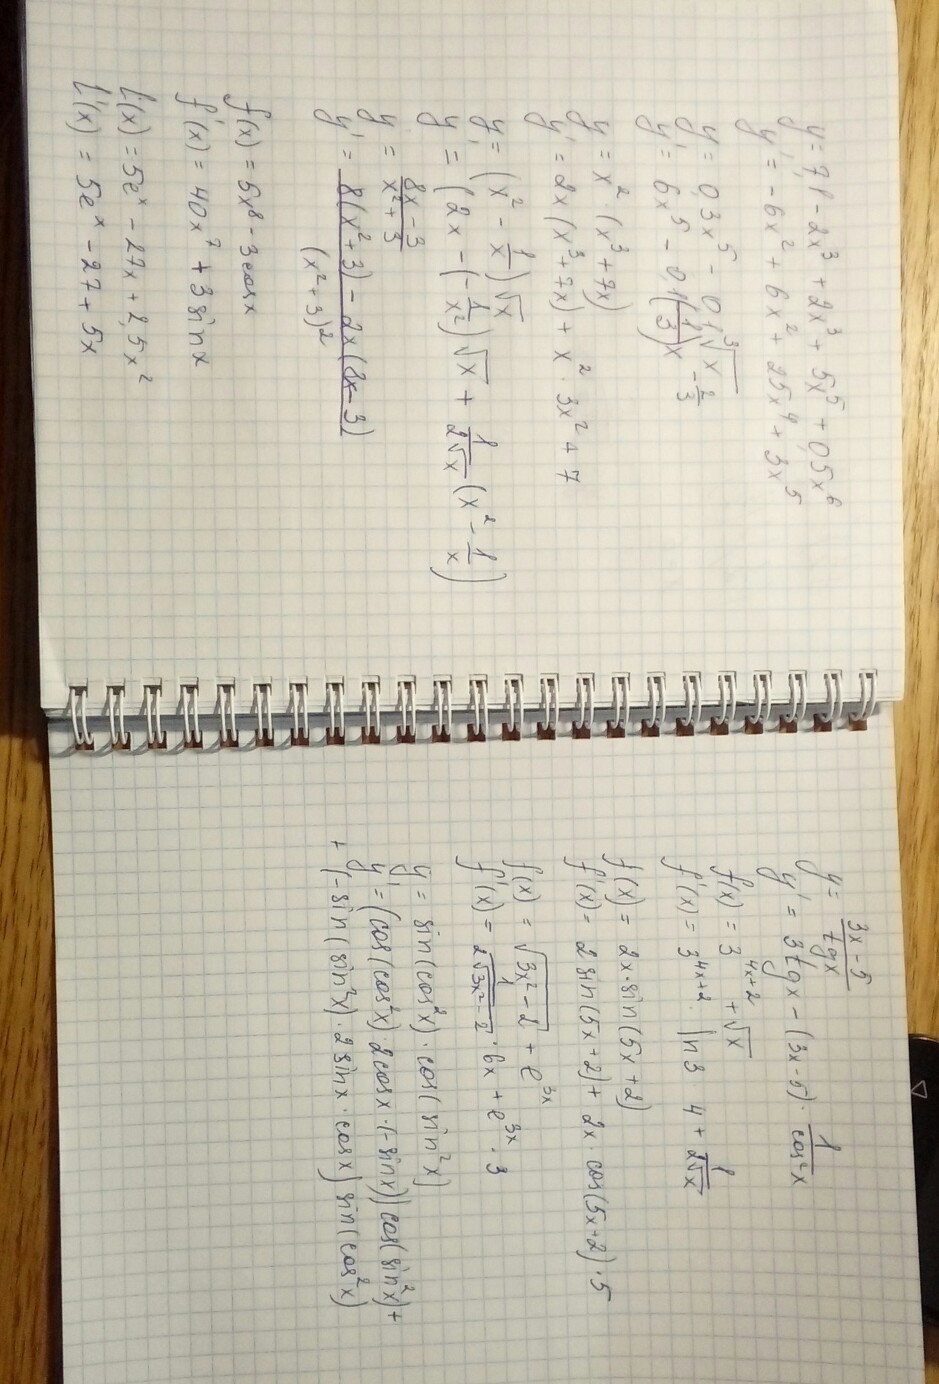 y = 7,1 - 2x³ + 2x³ + 5x⁵ + 0,5x⁶
y' = -6x² + 6x² + 25x⁴ + 3x⁵
y = 0,3x⁵ - 0,1∛x
y' = 6x⁵ - 0,1(1/3)x^(-2/3)
y = x² · (x³ + 7x)
y' = 2x(x³ + 7x) + x² · 3x² + 7
y = (x² - 1/x)√x
y' = (2x - (-1/x²))√x + 1/(2√x) (x² - 1/x)
y = (8x - 3)/(x² + 3)
y' = (8(x² + 3) - 2x(8x - 3))/(x² + 3)²
f(x) = 5x⁸ - 3cosx
f'(x) = 40x⁷ + 3sinx
f(x) = 5eˣ - 27x + 2,5x²
f'(x) = 5eˣ - 27 + 5x
y = (3x - 5)/tgx
y' = 3tgx - (3x - 5) · 1/cos²x
f(x) = 3^(4x+2) + √x
f'(x) = 3^(4x+2) · ln3 4 + 1/(2√x)
f(x) = 2x · sin(5x + 2)
f'(x) = 2sin(5x + 2) + 2x · cos(5x + 2) · 5
f(x) = √(3x² - 2) + e^(3x)
f'(x) = 1/(2√(3x² - 2)) · 6x + e^(3x) · 3
y = sin(cos²x) · cos(sin²x)
y' = (cos(cos²x) · 2cosx · (-sinx)) cos(sin²x) +
+ (-sin(sin²x) · 2sinx · cosx) sin(cos²x)